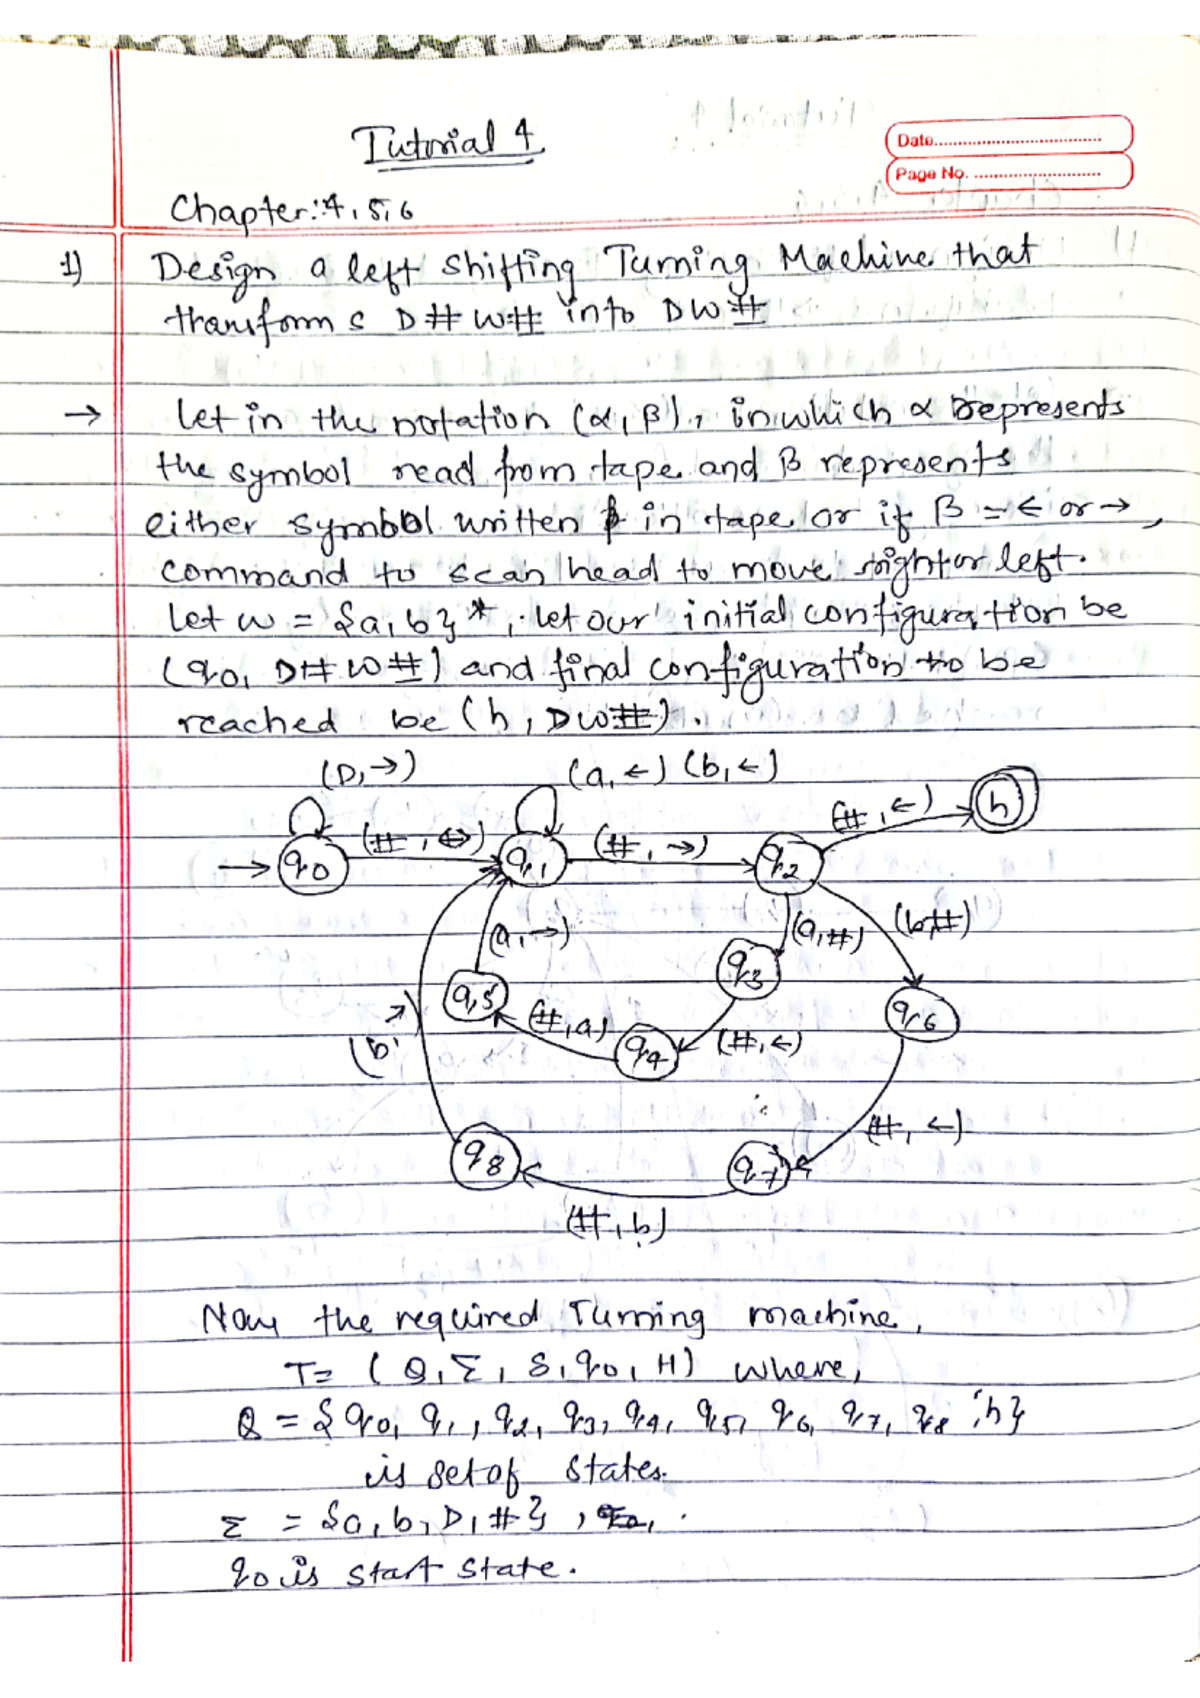 Tutorial 4
Date
Page No.
Chapter: 4, 5, 6
1) Design a left shifting Turning Machine that
transforms D#W# into DW#
→ Let in the notation (α, β), in which α represents
the symbol read from tape and β represents
either symbol written in tape or if β = ← or →,
command to scan head to move right or left.
let w = {a, b}*, let our initial configuration be
(q0, D#W#) and final configuration to be
reached be (h, DW#).
(D, →) (a, ←) (b, ←)
(#, ←) h
→ q0 (#, ←) q1 (#, →) q2
(a, →) (a, #) (b, #)
q3
q5 (#, a) q4 (#, ←) q6
(b, →)
(#, ←)
q8 q7
(#, b)
Now the required Turning machine,
T = (Q, Σ, δ, q0, H) where,
Q = {q0, q1, q2, q3, q4, q5, q6, q7, q8, h}
is set of states.
Σ = {a, b, D, #},
q0 is start state.